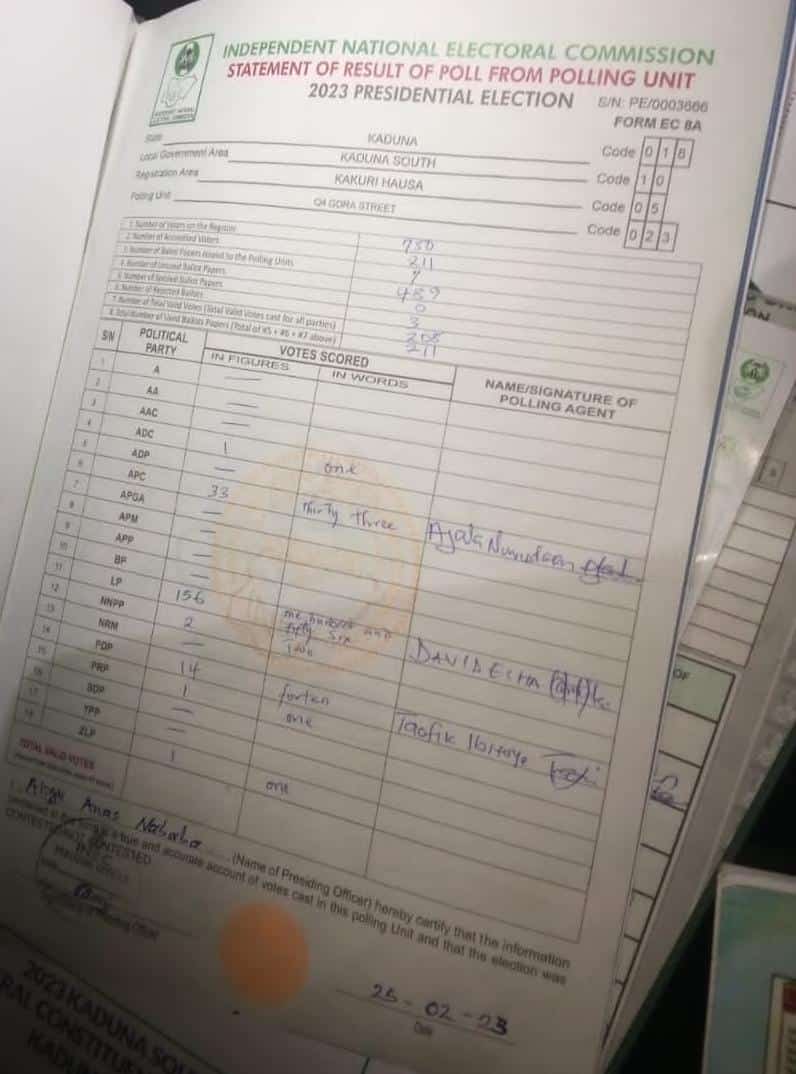 INDEPENDENT NATIONAL ELECTORAL COMMISSION
STATEMENT OF RESULT OF POLL FROM POLLING UNIT
2023 PRESIDENTIAL ELECTION S/N: PE/0003666
FORM EC 8A
State KADUNA Code 018
Local Government Area KADUNA SOUTH Code 10
Registration Area KAKURI HAUSA Code 05
Polling Unit O4 GORA STREET Code 023
1. Number of Voters on the Register 750
2. Number of Accredited Voters 211
3. Number of Ballot Papers Issued to the Polling Units
4. Number of Unused Ballot Papers
5. Number of Spoiled Ballot Papers 0
6. Number of Rejected Ballots 3
7. Number of Total Valid Votes (Total Valid Votes cast for all parties) 208
8. Total Number of Used Ballots Papers (Total of #5 + #6 + #7 above) 211
S/N POLITICAL PARTY VOTES SCORED NAME/SIGNATURE OF POLLING AGENT
IN FIGURES IN WORDS
1 A —
2 AA —
3 AAC —
4 ADC 1 one
5 ADP —
6 APC 33 Thirty three Ajala
7 APGA —
8 APM —
9 APP
10 BP —
11 LP 156 one hundred and fifty six DAVID
12 NNPP 2 Two
13 NRM —
14 PDP 14 forten Taofik
15 PRP 1 one
16 SDP —
17 YPP —
18 ZLP 1 one
TOTAL VALID VOTES
I, Anas (Name of Presiding Officer) hereby certify that the information
contained in this form is a true and accurate account of votes cast in this polling Unit and that the election was
CONTESTED/NOT CONTESTED
25-02-23
Date
OF
2023 KADUNA SOU
RAL CONSTITUEN